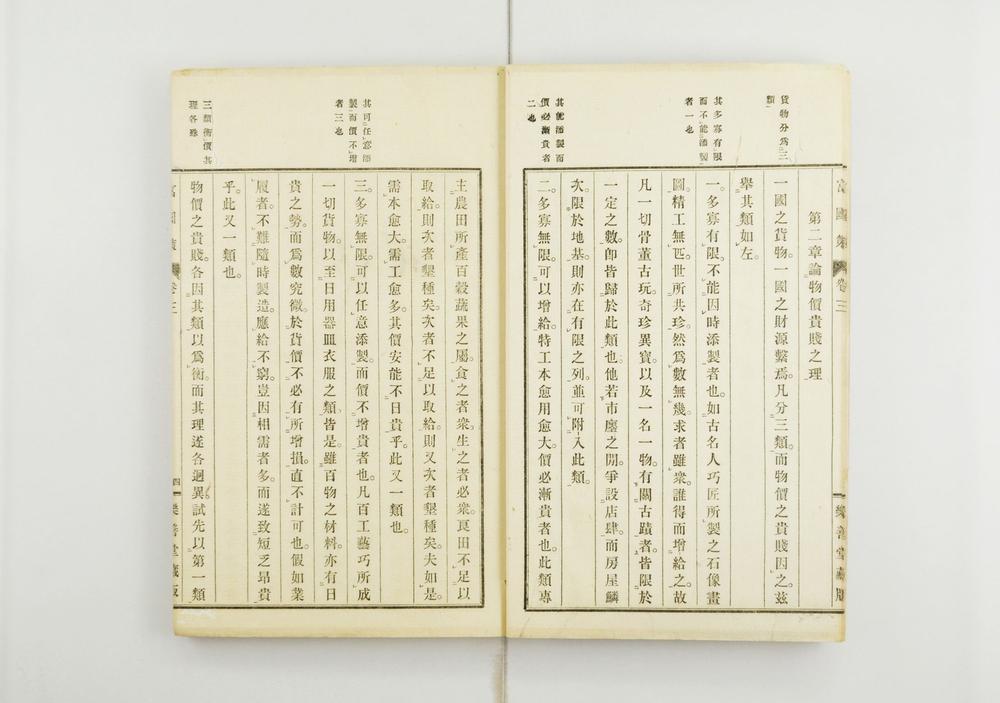 貨物分爲三
類
其多寡有限
而不能添製
者一也
其能添製而
價必漸貴者
二也
富國策 卷三
樂善堂藏版
第二章論物價貴賤之理
一國之貨物。一國之財源繫焉。凡分三類。而物價之貴賤因之。茲
舉其類如左。
一。多寡有限。不能因時添製者也。如古名人巧匠所製之石像畫
圖。精工無匹。世所共珍。然爲數無幾。求者雖衆。誰得而增給之。故
凡一切骨董古玩。奇珍異寶。以及一名一物。有關古蹟者。皆限於
一定之數。卽皆歸於此類也。他若市廛之間。爭設店肆。而房屋鱗
次。限於地基。則亦在有限之列。並可附入此類。
二。多寡無限。可以增給。特工本愈用愈大。價必漸貴者也。此類專
其可任意添
製而價不增
者三也
三類衡價其
理各殊
主農田所產百穀蔬果之屬。食之者衆。生之者必衆。良田不足以
取給。則次者墾種矣。次者不足以取給。則又次者墾種矣。夫如是。
需本愈大。需工愈多。其價安能不日貴乎。此又一類也。
三。多寡無限。可以任意添製。而價不增貴者也。凡百工藝巧所成
一切貨物。以至日用器皿衣服之類。皆是。雖百物之材料。亦有日
貴之勢。而爲數究微。於貨價不必有所增損。直不計可也。假如業
履者。不難隨時製造。應給不窮。豈因相需者多。而遂致短乏昂貴
乎。此又一類也。
物價之貴賤。各因其類以爲衡。而其理遂各迥異。試先以第一類
富國策 卷三
四
樂善堂藏版